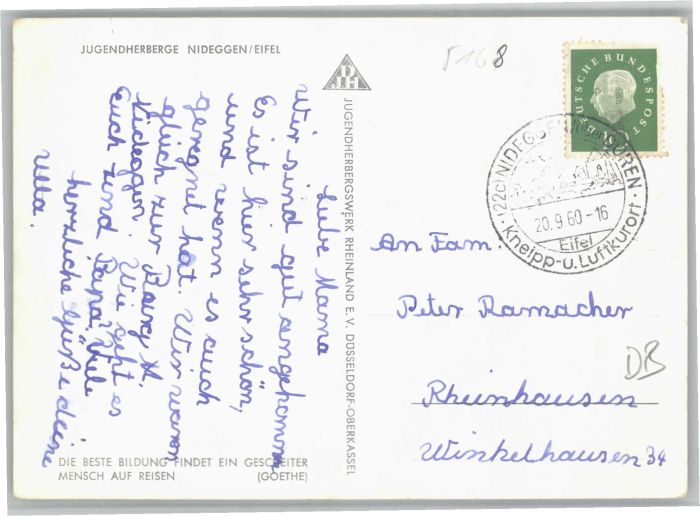 JUGENDHERBERGE NIDEGGEN/EIFEL
5168
Liebe Mama
Wir sind gut angekommen
Es ist hier sehr schön,
und wenn es auch
geregnet hat. Wir waren
gleich zur Burg H.
Nideggen. Wie geht es
Euch und Papa? Viele
herzliche Grüße deine
Utta.
DIE BESTE BILDUNG FINDET EIN GESCHEITER
MENSCH AUF REISEN (GOETHE)
JUGENDHERBERGSWERK RHEINLAND E. V. DÜSSELDORF-OBERKASSEL
DEUTSCHE BUNDESPOST
(22c) NIDEGGEN DÜREN
20.9.60-16
Eifel
Kneipp-u. Luftkurort
An Fam.
Peter Ramacher
DB
Rheinhausen
Winkelhausen 34